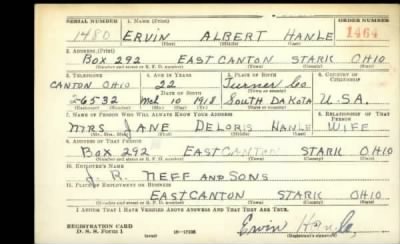 SERIAL NUMBER 1. NAME (Print) ORDER NUMBER
1480 ERVIN ALBERT HANLE 1464
(First) (Middle) (Last)
2. ADDRESS (Print)
BOX 292 EAST CANTON STARK OHIO
(Number and street or R. F. D. number) (Town) (County) (State)
3. TELEPHONE 4. AGE IN YEARS 5. PLACE OF BIRTH 6. COUNTRY OF CITIZENSHIP
CANTON OHIO 22 Turner Co
DATE OF BIRTH (Town or county)
6532 Mch 10 1918 SOUTH DAKOTA U.S.A.
(Mo.) (Day) (Yr.) (State or country)
7. NAME OF PERSON WHO WILL ALWAYS KNOW YOUR ADDRESS 8. RELATIONSHIP OF THAT PERSON
MRS JANE DELORIS HANLE WIFE
(Mr., Mrs., Miss) (First) (Middle) (Last)
9. ADDRESS OF THAT PERSON
BOX 292 EAST CANTON STARK OHIO
(Number and street or R. F. D. number) (Town) (County) (State)
10. EMPLOYER'S NAME
J. R. NEFF AND SONS
11. PLACE OF EMPLOYMENT OR BUSINESS
EAST CANTON STARK OHIO
(Number and street or R. F. D. number) (Town) (County) (State)
I AFFIRM THAT I HAVE VERIFIED ABOVE ANSWERS AND THAT THEY ARE TRUE.
REGISTRATION CARD
D. S. S. Form 1 16—17105 Ervin Hanle
(Registrant's signature)